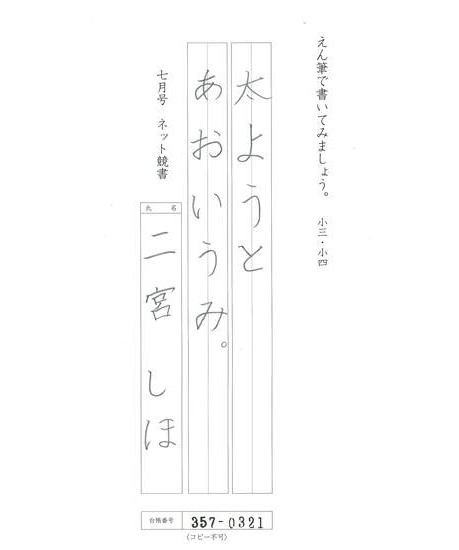 えん筆で書いてみましょう。 小三・小四
太ようと
あおいうみ。
七月号 ネット競書
氏名
二宮 しほ
台帳番号 357-0321
(コピー不可)